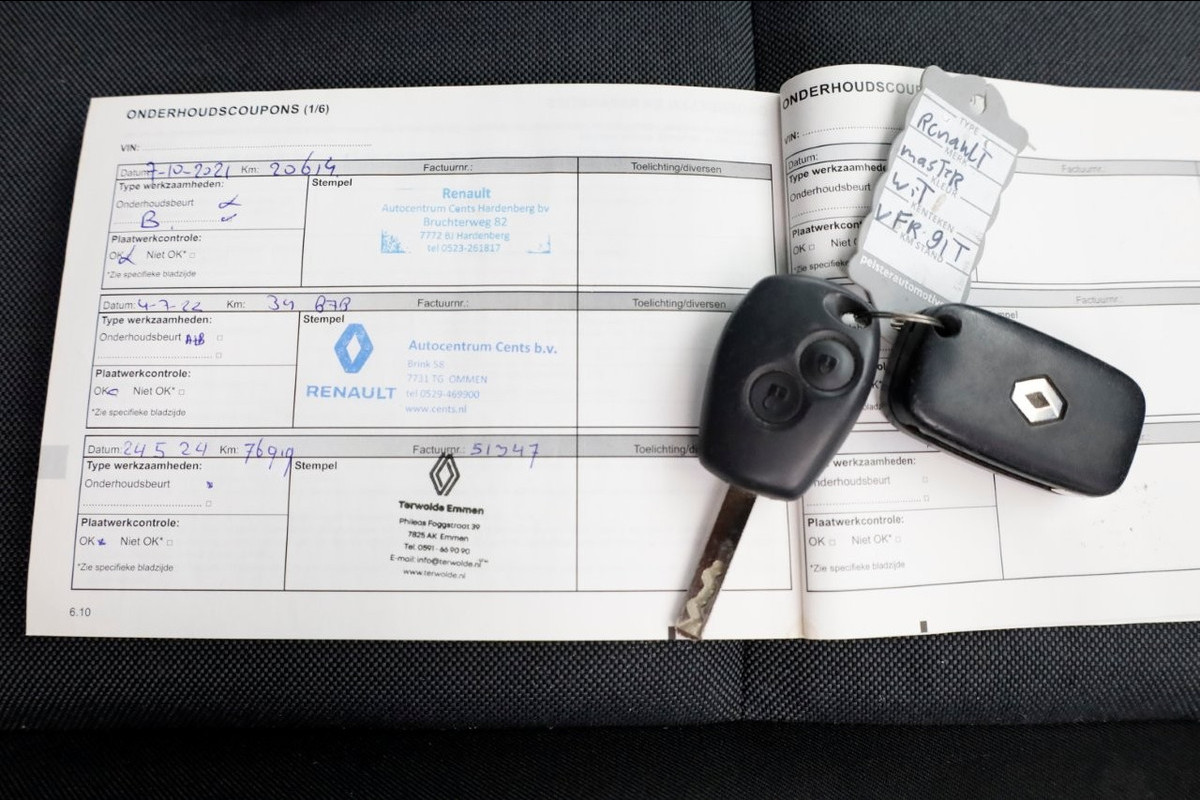 ONDERHOUDSCOUPONS (1/6)
VIN:
Datum: 7-10-2021 Km: 20614 Factuurnr.: Toelichting/diversen
Type werkzaamheden: Stempel
Onderhoudsbeurt
B.
Plaatwerkcontrole:
OK Niet OK*
*Zie specifieke bladzijde
Renault
Autocentrum Cents Hardenberg bv
Bruchterweg 82
7772 BJ Hardenberg
tel 0523-261817
Datum: 4-7-22 Km: 34 Factuurnr.: Toelichting/diversen
Type werkzaamheden: Stempel
Onderhoudsbeurt A+B
Plaatwerkcontrole:
OK Niet OK*
*Zie specifieke bladzijde
RENAULT
Autocentrum Cents b.v.
Brink 58
7731 TG OMMEN
tel 0529-469900
www.cents.nl
Datum: 24 5 24 Km: 76919 Factuurnr.: 51347
Type werkzaamheden: Stempel
Onderhoudsbeurt
Plaatwerkcontrole:
OK Niet OK*
*Zie specifieke bladzijde
Terwolde Emmen
Phileas Foggstraat 39
7825 AK Emmen
Tel. 0591 - 66 90 90
E-mail: info@terwolde.nl
www.terwolde.nl
6.10
VIN:
Datum:
Type werkzaamheden
Onderhoudsbeurt
OK
TYPE
Renault
MERK
master
KLEUR
wit
KENTEKEN
VFR-91T
KM STAND
pelstereautomotive
Factuurnr.:
werkzaamheden:
Onderhoudsbeurt
Plaatwerkcontrole:
OK Niet OK*
*Zie specifieke bladzijde